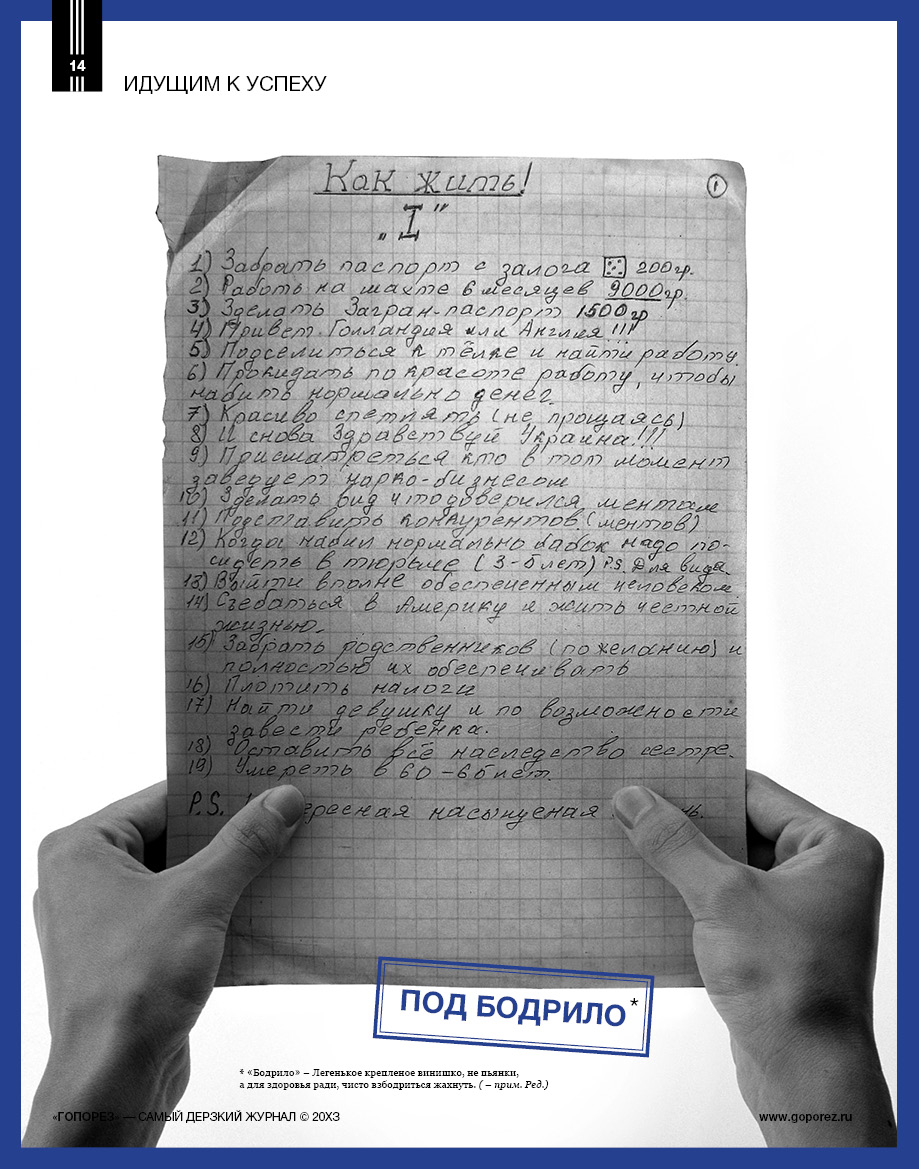 14
ИДУЩИМ К УСПЕХУ
Как жить!
1
„I"
1) Забрать паспорт с залога 200гр.
2) Работь на шахте 6 месяцев 9000гр.
3) Зделать Загран-паспорт 1500гр
4) Привет Голландия или Англия!!!
5) Подселиться к тёлке и найти работу.
6) Прокидать по красоте работу, чтобы
набить нормально денег.
7) Красиво спетлять (не прощаясь)
8) И снова Здравствуй Украина!!!
9) Присматреться кто в тот момент
заведует нарко-бизнесом
10) Зделать вид что доверился ментам
11) Подставить конкурентов. (ментов)
12) Когда набил нормально бабок надо по-
сидеть в тюрьме (3-5лет) P.S. Для вида.
13) Выйти вполне обеспеченным человеком.
14) Съебаться в Америку и жить честной
жизнью.
15) Забрать родственников (по желанию) и
полностью их обеспечивать
16) Плотить налоги
17) Найти девушку и по возможности
завести ребёнка.
18) Оставить всё наследство сестре.
19) Умереть в 60-65лет.
P.S. насыщеная
ПОД БОДРИЛО*
* «Бодрило» – Легенькое крепленое винишко, не пьянки,
а для здоровья ради, чисто взбодриться жахнуть. ( – прим. Ред.)
«ГОПОРЕЗ» — САМЫЙ ДЕРЗКИЙ ЖУРНАЛ © 20X3
www.goporez.ru